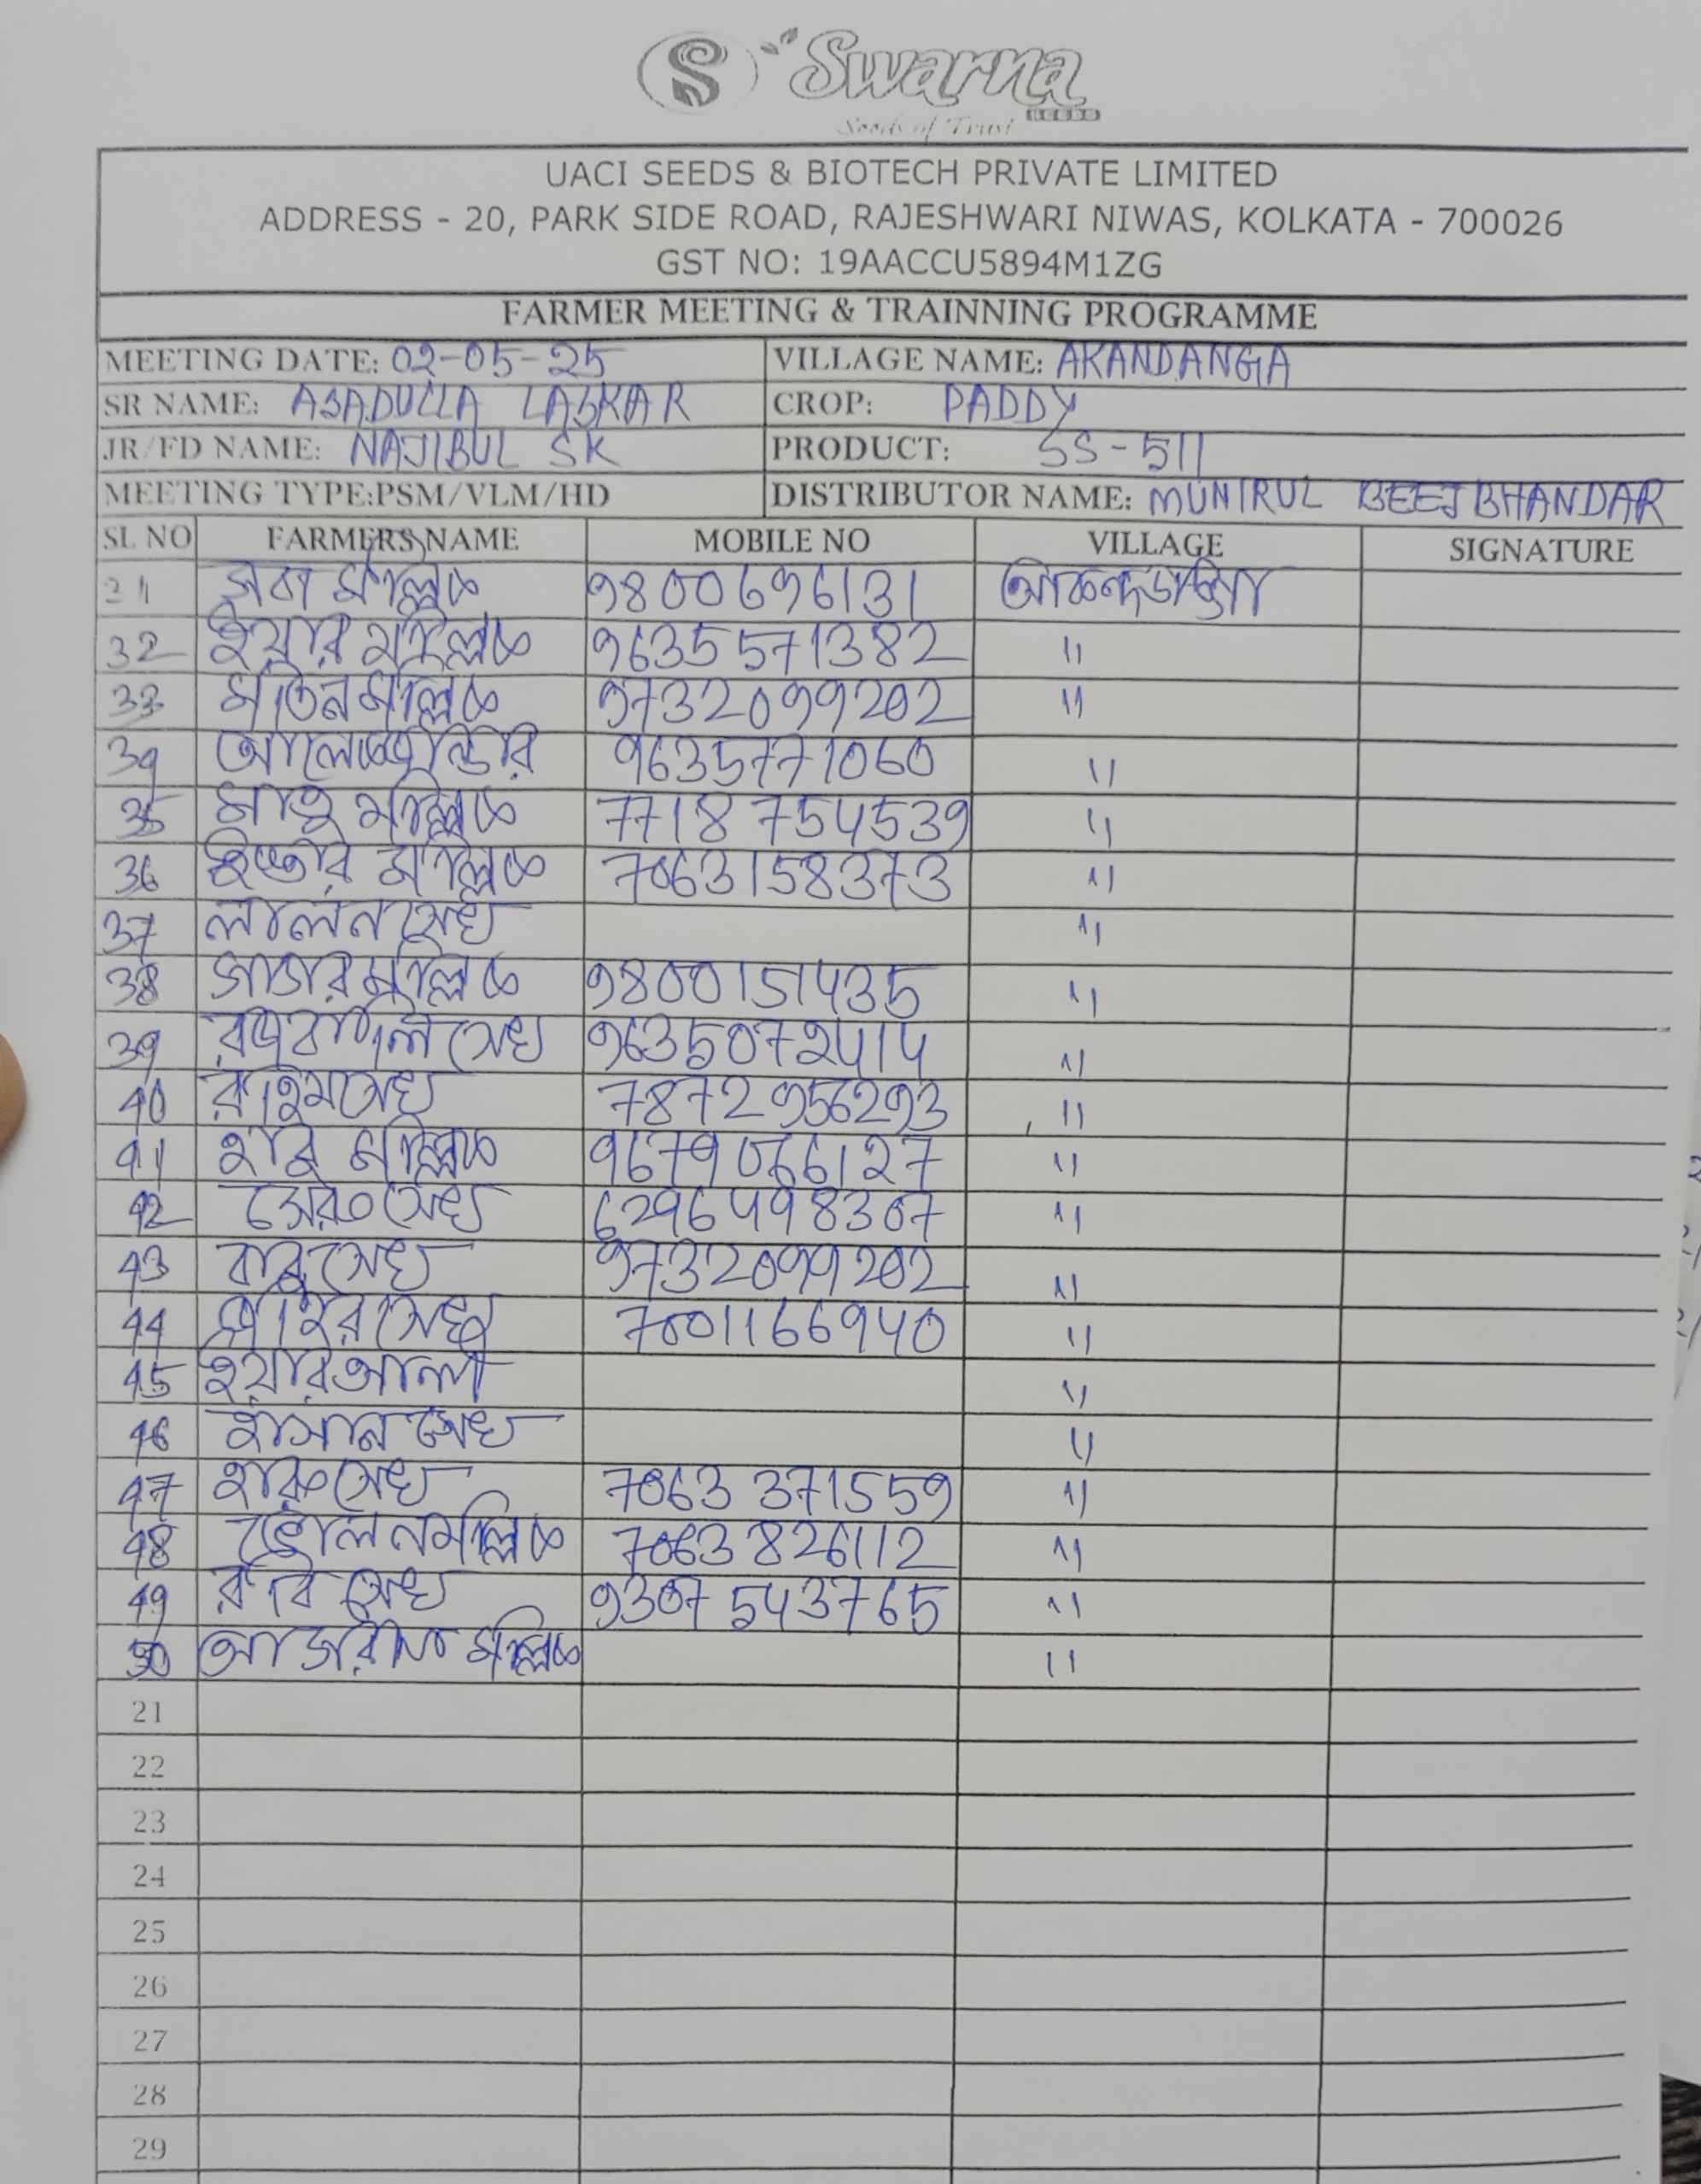 S Swarna
SEEDS
Seeds of Trust
UACI SEEDS & BIOTECH PRIVATE LIMITED
ADDRESS - 20, PARK SIDE ROAD, RAJESHWARI NIWAS, KOLKATA - 700026
GST NO: 19AACCU5894M1ZG
FARMER MEETING & TRAINNING PROGRAMME
MEETING DATE: 02-05-25 VILLAGE NAME: AKANDANGA
SR NAME: ASADULLA LASKAR CROP: PADDY
JR/FD NAME: NAJIBUL SK PRODUCT: SS-511
MEETING TYPE:PSM/VLM/HD DISTRIBUTOR NAME: MUNIRUL BEEJ BHANDAR
SL NO FARMERS NAME MOBILE NO VILLAGE SIGNATURE
মল্লিক 9800696131
32 ইয়ার মল্লিক 9635571382 "
33 মতিন মল্লিক 9732099202 "
34 9635771060 "
35 মল্লিক 7718754539 "
36 মল্লিক 7063158373 "
37 লালন সেখ "
38 মল্লিক 9800151435 "
39 সেখ 9635072414 "
40 রহিম সেখ 7872956293 "
41 হাবু মল্লিক 9679066127 "
42 সেরু সেখ 6296498307 "
43 বাবু সেখ 9732099202 "
44 সেখ 7001166940 "
45 ইয়ার আলী "
46 হাসান সেখ "
47 হারু সেখ 7063371559 "
48 মল্লিক 7063826112 "
49 রবি সেখ 9307543765 "
50 মল্লিক "
21
22
23
24
25
26
27
28
29